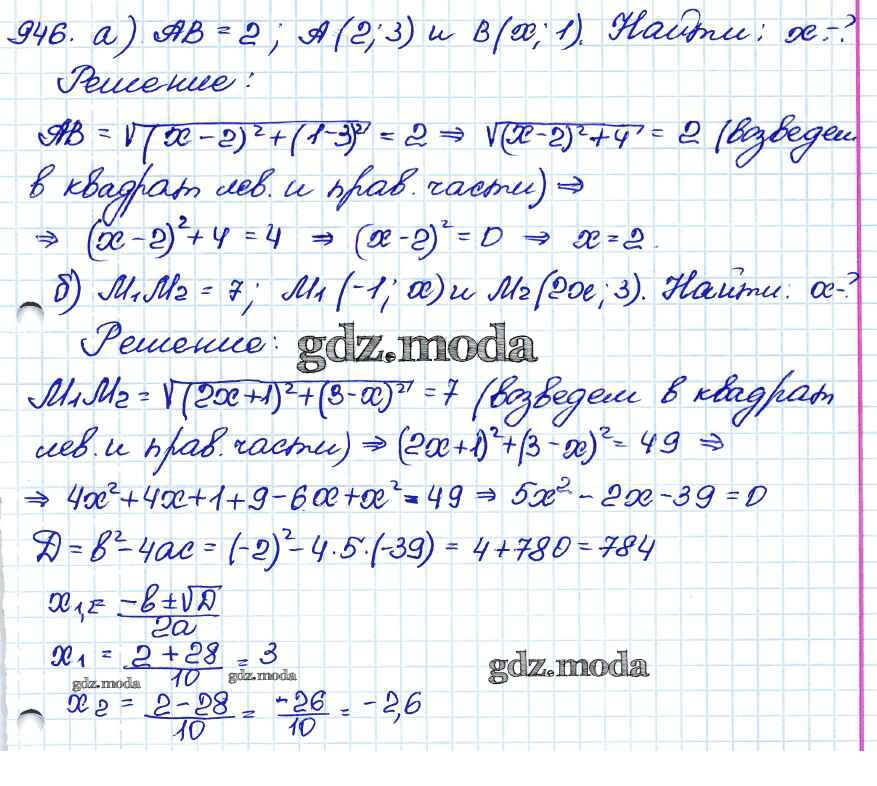 946. а) AB = 2; A(2; 3) и B(x; 1). Найти: x-?
Решение:
AB = √((x-2)²+(1-3)²) = 2 ⇒ √((x-2)²+4) = 2 (возведем
в квадрат лев. и прав. части) ⇒
⇒ (x-2)²+4 = 4 ⇒ (x-2)² = 0 ⇒ x = 2.
б) M₁M₂ = 7; M₁(-1; x) и M₂(2x; 3). Найти: x-?
Решение:
gdz.moda
M₁M₂ = √((2x+1)²+(3-x)²) = 7 (возведем в квадрат
лев. и прав. части) ⇒ (2x+1)²+(3-x)² = 49 ⇒
⇒ 4x²+4x+1+9-6x+x² = 49 ⇒ 5x²-2x-39 = 0
D = b²-4ac = (-2)²-4·5·(-39) = 4+780 = 784
x₁,₂ = (-b±√D)/2a
x₁ = (2+28)/10 = 3
gdz.moda
gdz.moda
gdz.moda
x₂ = (2-28)/10 = -26/10 = -2,6